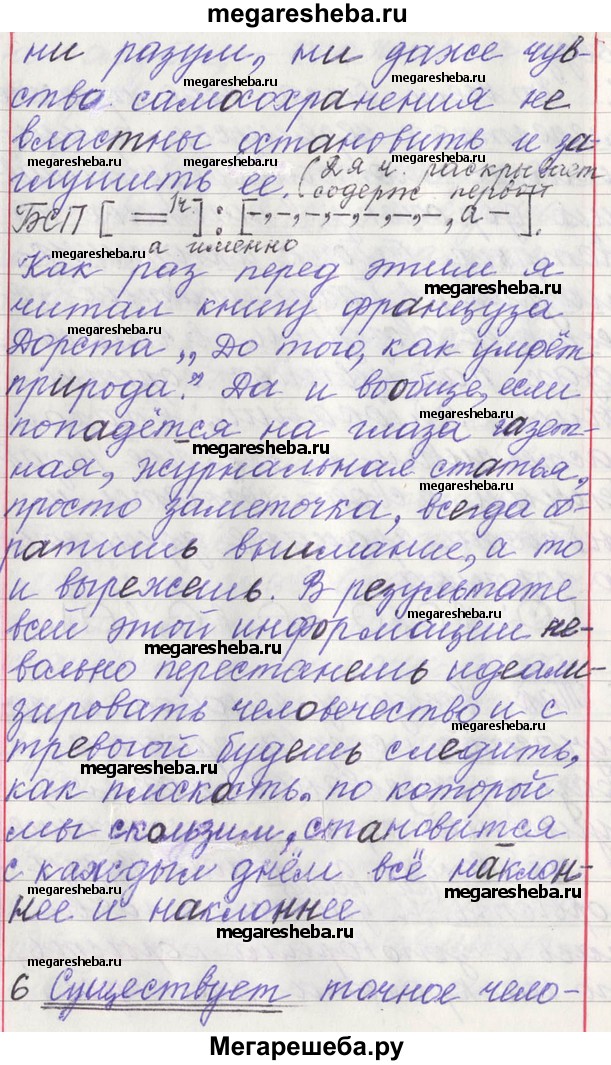 megaresheba.ru
ни разум, ни даже чув-
megaresheba.ru megaresheba.ru
ство самосохранения не
властны остановить и за-
megaresheba.ru megaresheba.ru
глушить ее. (2я ч. раскрывает
содерж первой
БСП [ = 1ч. ] : [-,-,-,-,-,-,-, а - ].
megaresheba.ru а именно
Как раз перед этим я
megaresheba.ru
читал книгу француза
megaresheba.ru
Дорста „До того, как умрёт
природа." Да и вообще, если
megaresheba.ru
попадётся на глаза газет-
megaresheba.ru
ная, журнальная статья,
megaresheba.ru
просто заметочка, всегда об-
megaresheba.ru
ратишь внимание, а то
и вырежешь. В результате
megaresheba.ru
всей этой информации не-
megaresheba.ru
вольно перестанешь идеали-
зировать человечество и с
megaresheba.ru
тревогой будешь следить,
megaresheba.ru
как плоскость, по которой
мы скользим, становится
с каждым днём всё наклон-
megaresheba.ru megaresheba.ru
нее и наклоннее
megaresheba.ru
megaresheba.ru
6 Существует точное чело-
megaresheba.ru
Мегарешеба.ру